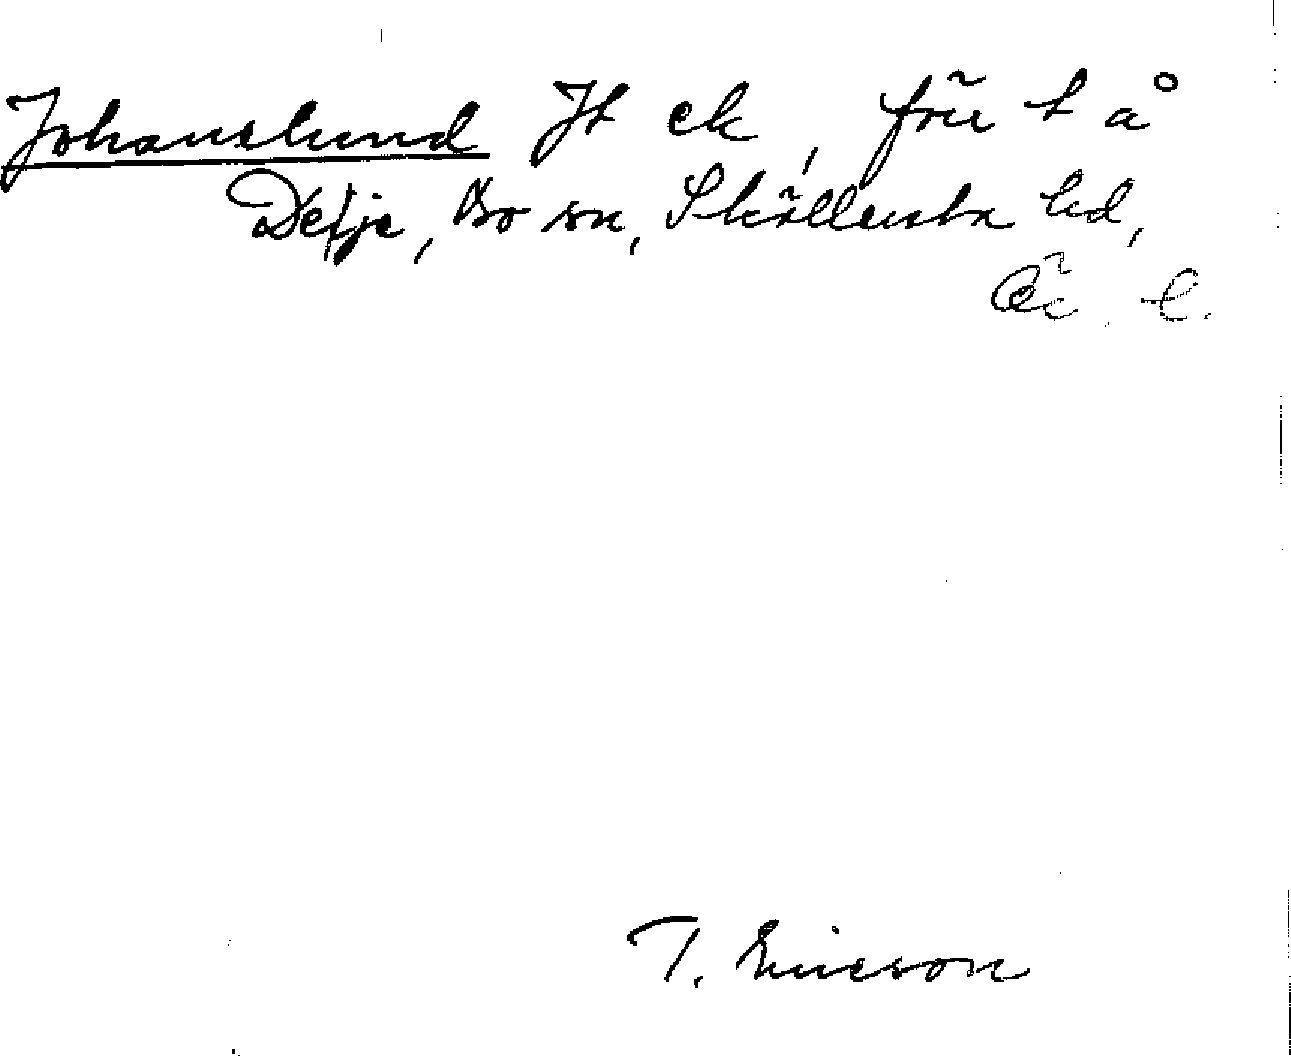 Johanslund Jt ek, förr t å
Detje, Bo sn, Sköllersta hd,
T. Ericson